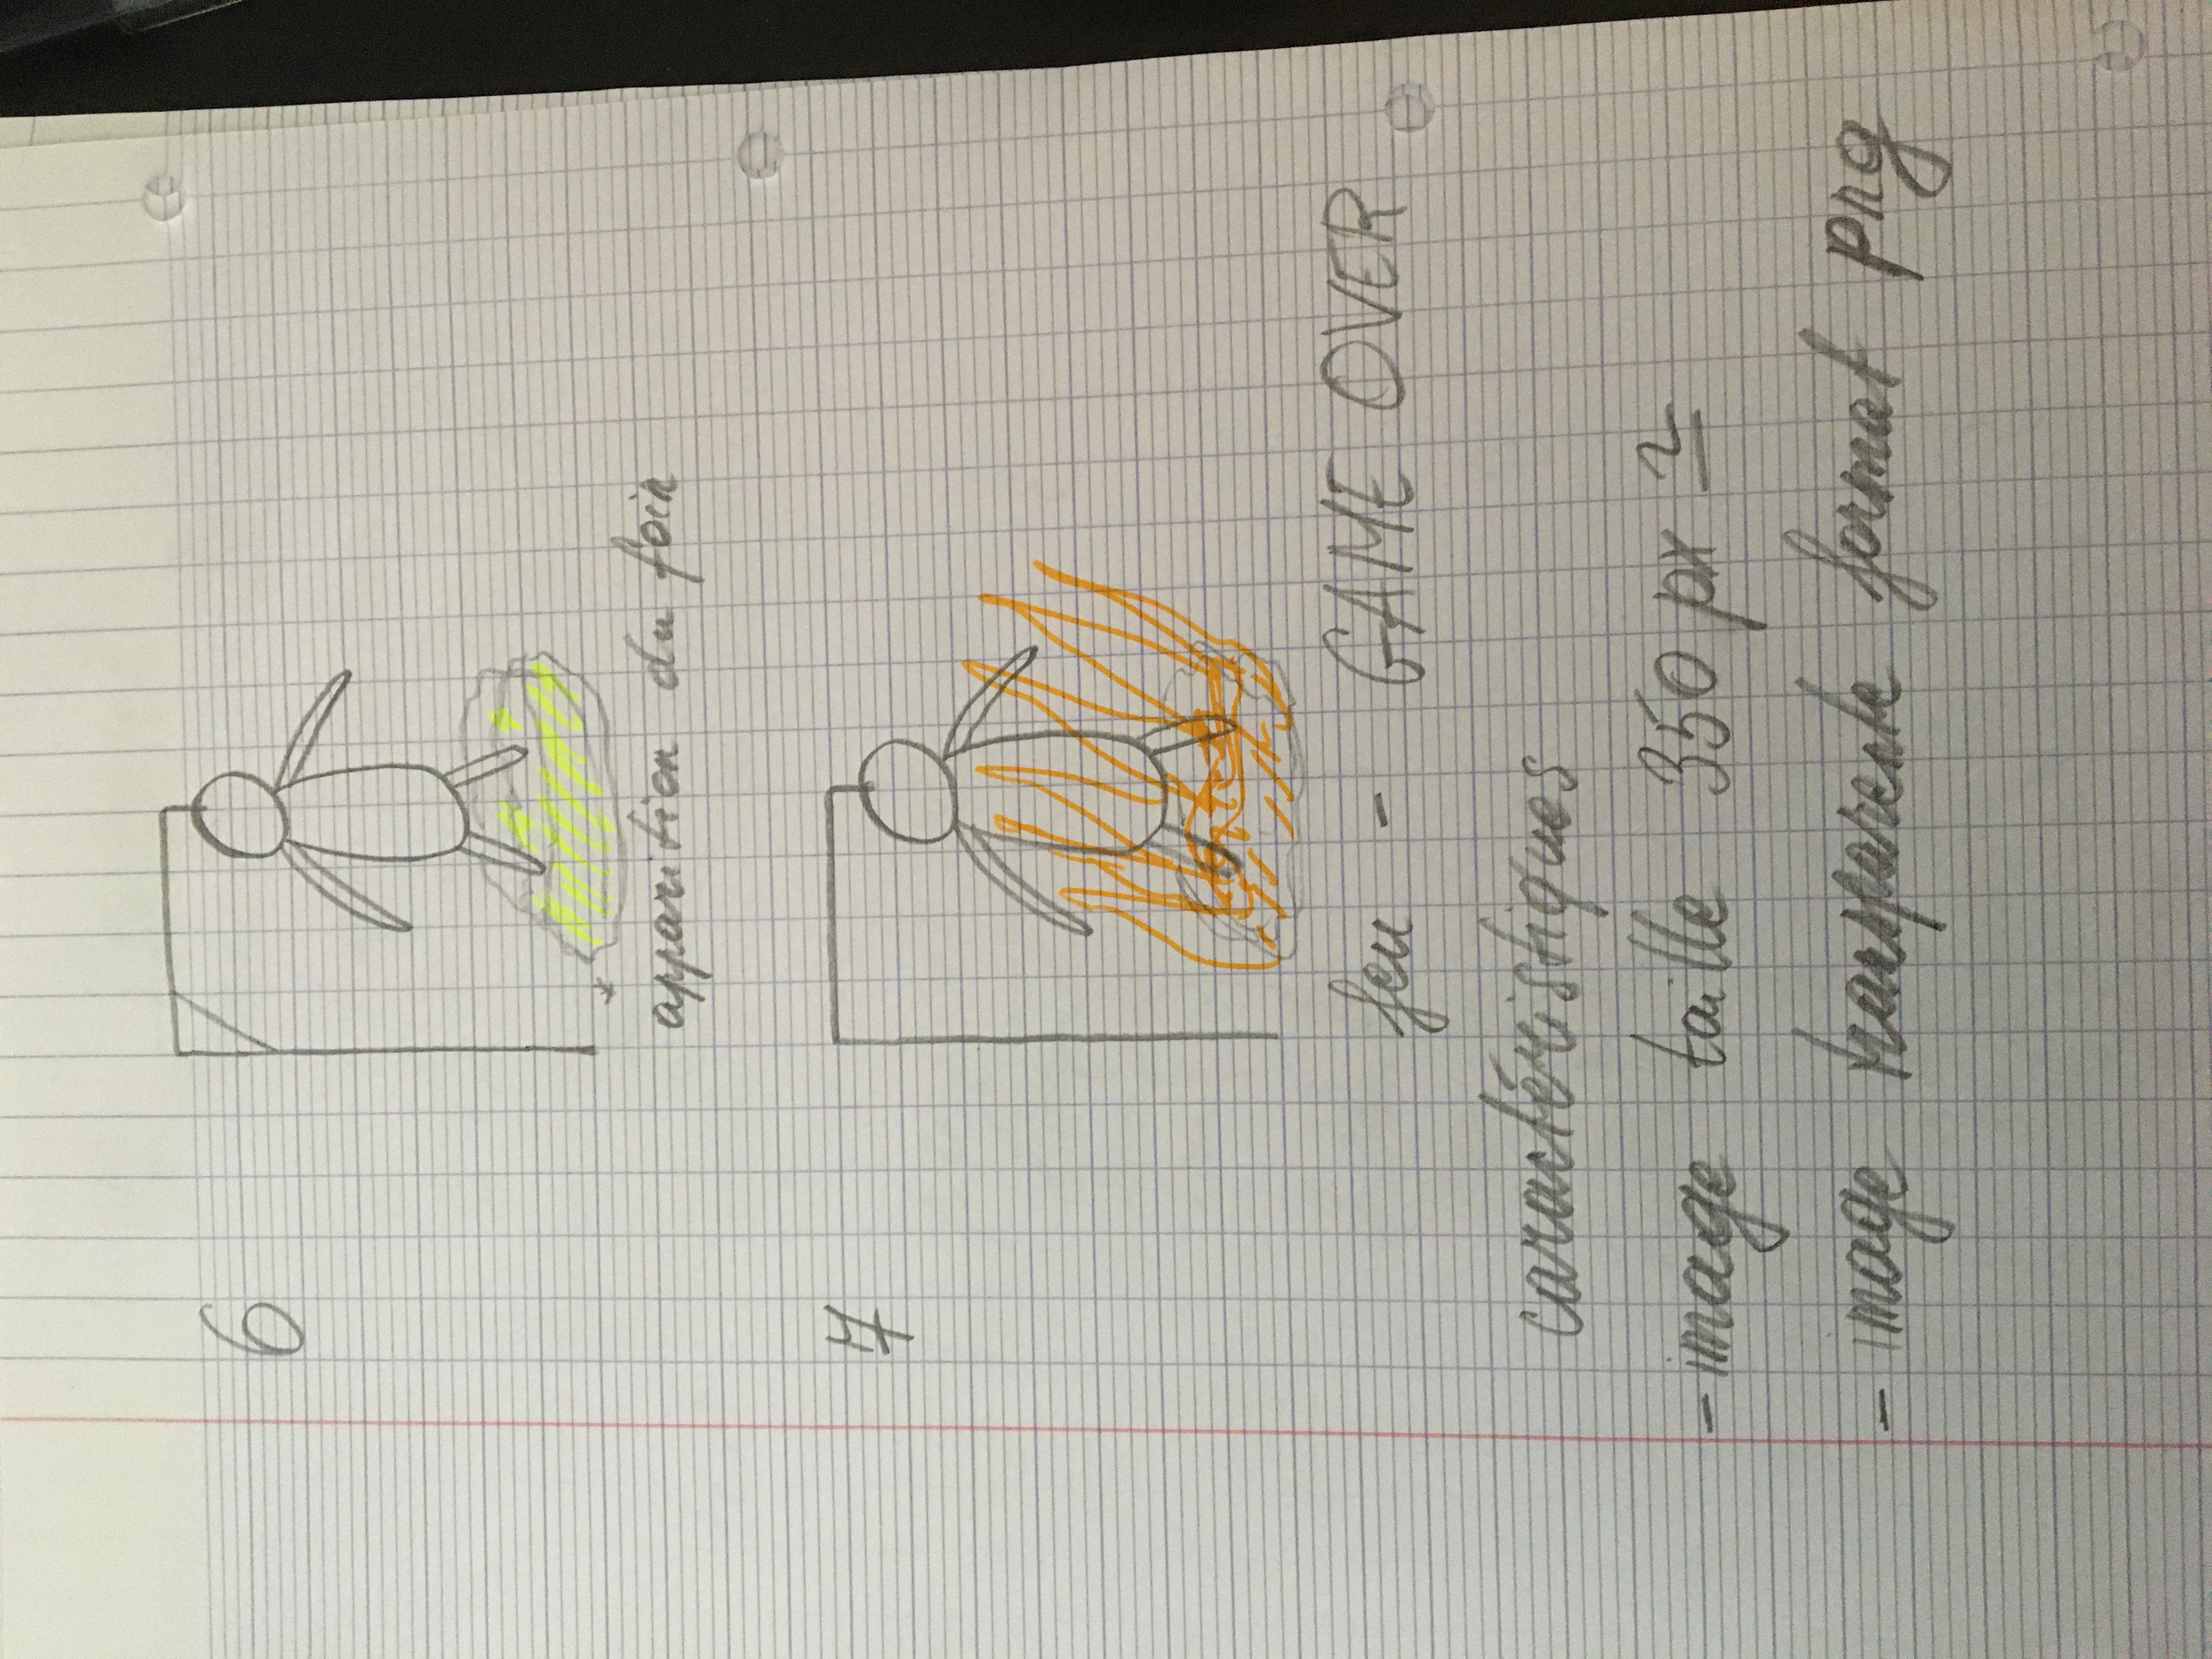 6
apparition du foin
7
feu - GAME OVER
caractéristiques
- image taille 350 px ²
- image transparente format png